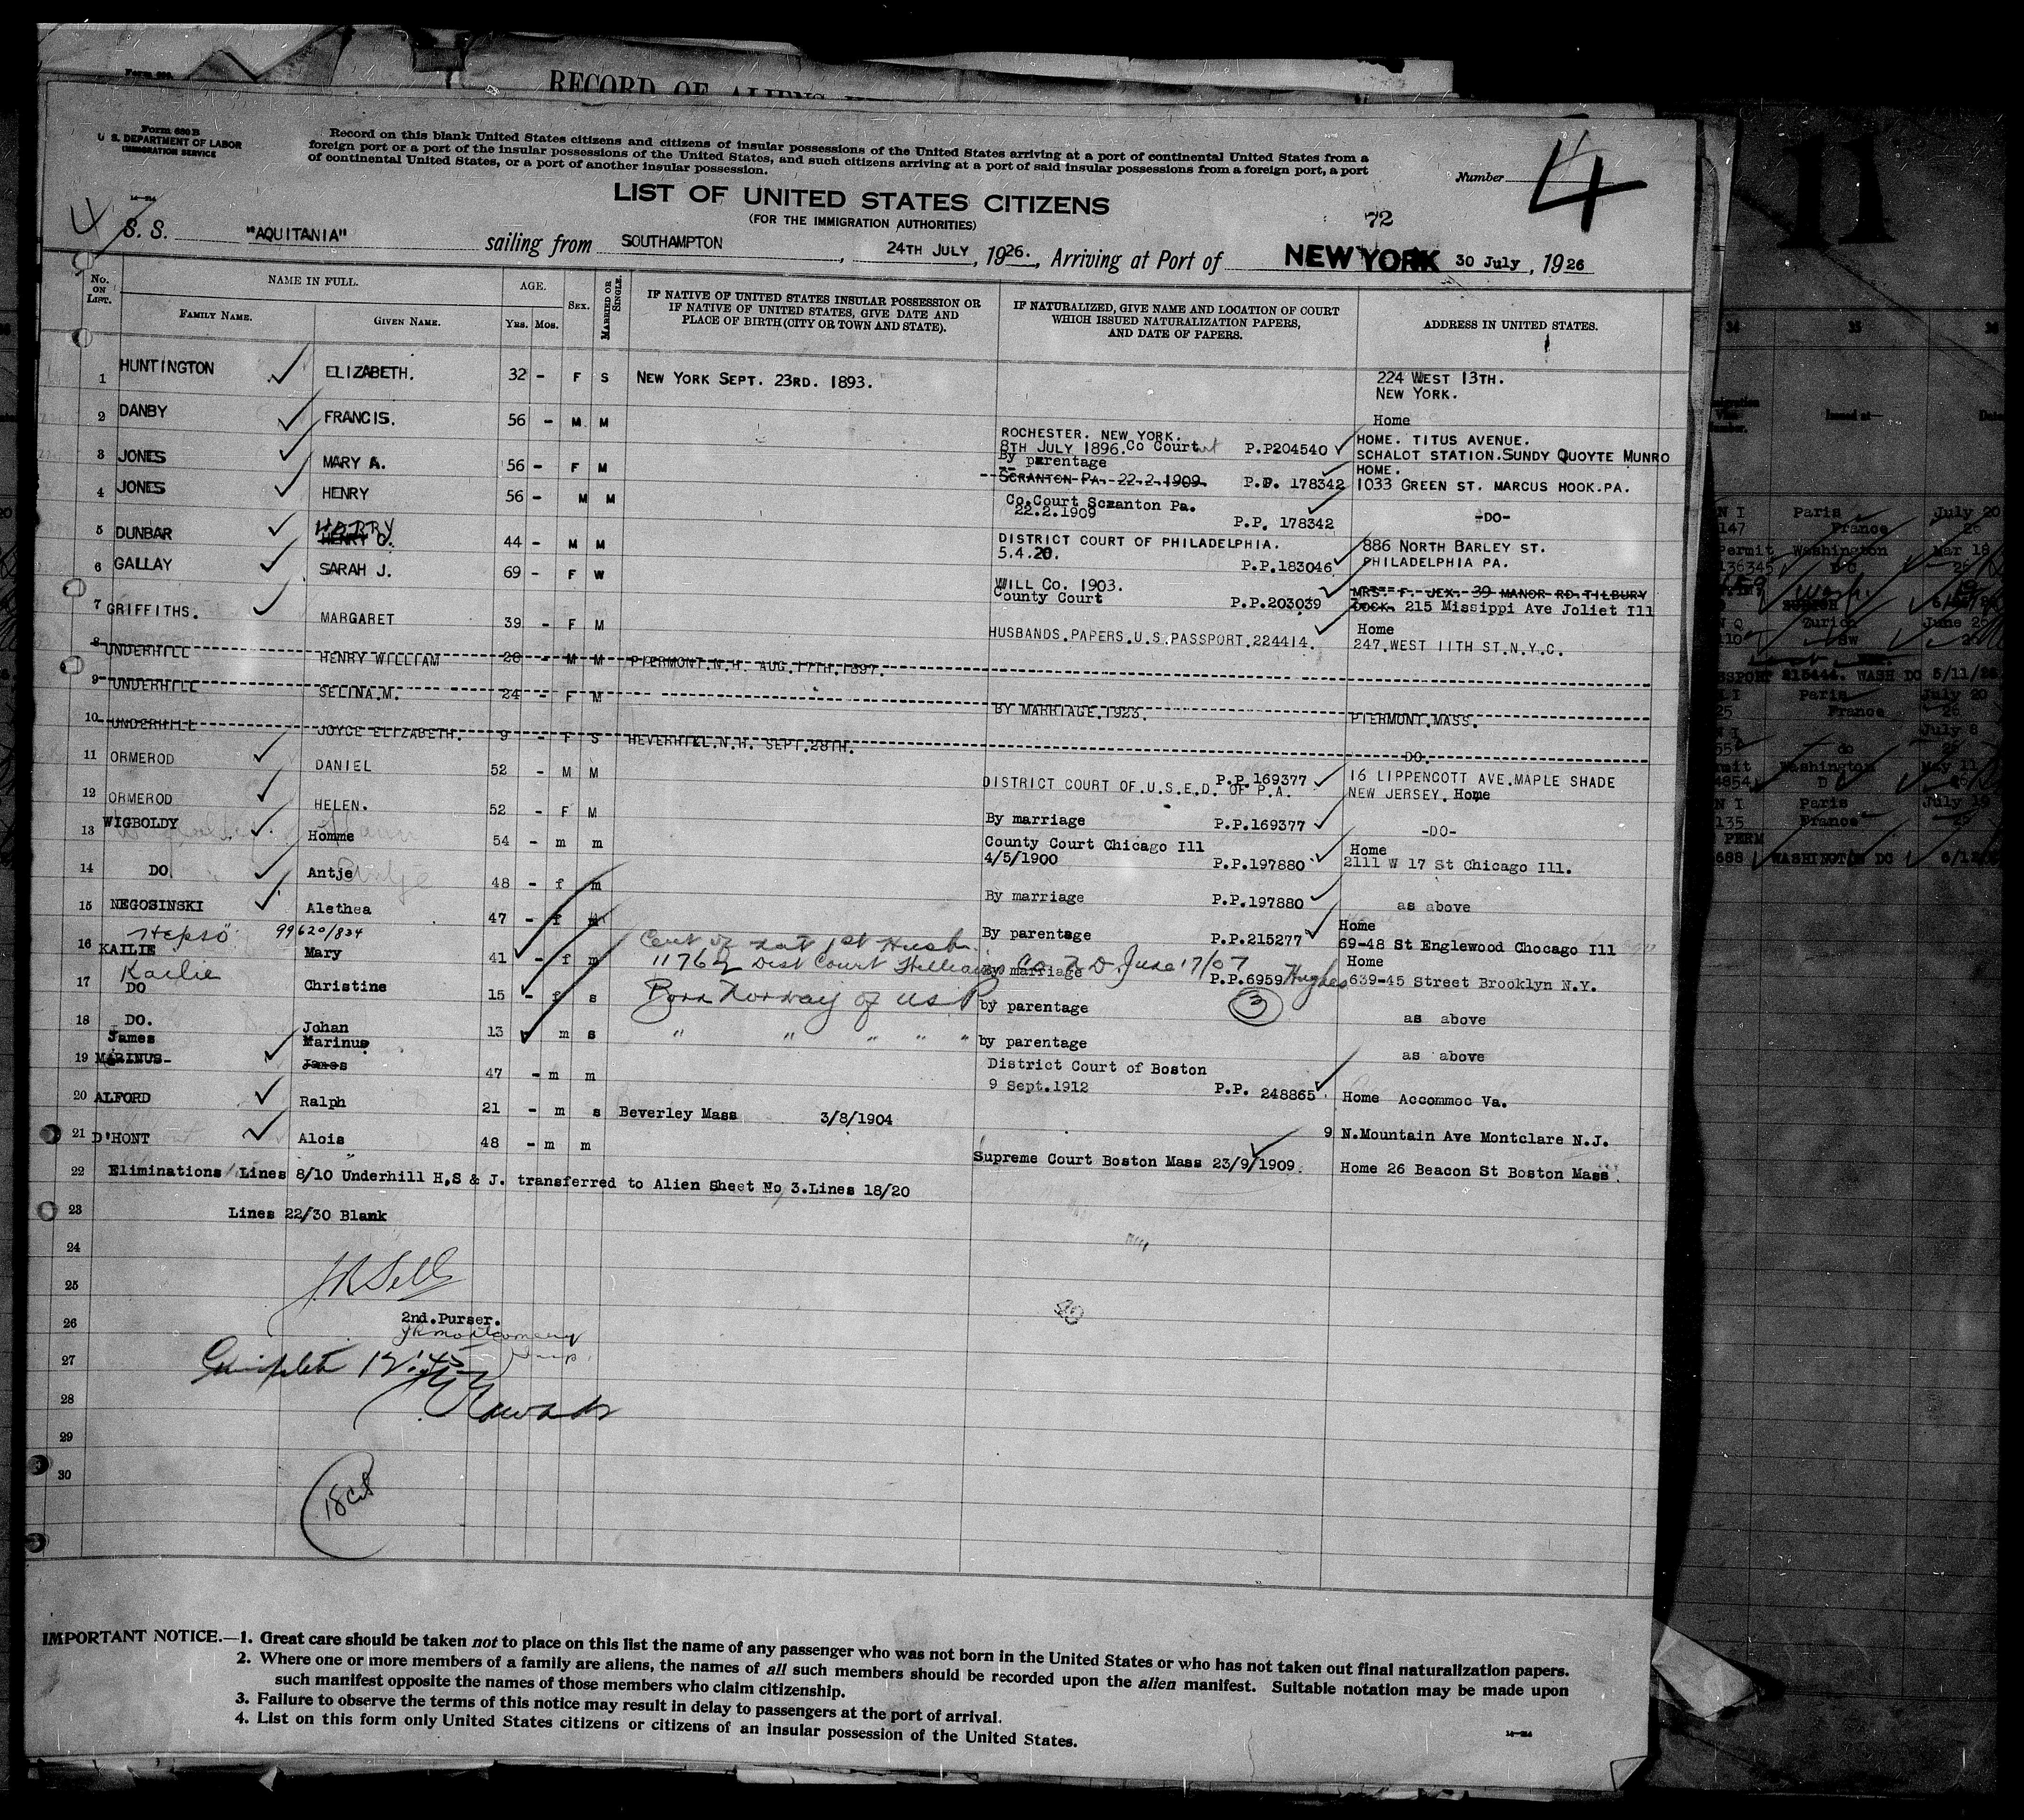 RECORD OF ALIENS
Form 630 B
U. S. DEPARTMENT OF LABOR
IMMIGRATION SERVICE
Record on this blank United States citizens and citizens of insular possessions of the United States arriving at a port of continental United States from a
foreign port or a port of the insular possessions of the United States, and such citizens arriving at a port of said insular possessions from a foreign port, a port
of continental United States, or a port of another insular possession.
Number 4
LIST OF UNITED STATES CITIZENS
(FOR THE IMMIGRATION AUTHORITIES)
72
4
S. S. "AQUITANIA" sailing from SOUTHAMPTON, 24TH JULY, 1926., Arriving at Port of NEW YORK 30 July, 1926
No. ON LIST. NAME IN FULL. FAMILY NAME. GIVEN NAME. AGE. YRS. MOS. SEX. MARRIED OR SINGLE.
IF NATIVE OF UNITED STATES INSULAR POSSESSION OR IF NATIVE OF UNITED STATES, GIVE DATE AND PLACE OF BIRTH (CITY OR TOWN AND STATE).
IF NATURALIZED, GIVE NAME AND LOCATION OF COURT WHICH ISSUED NATURALIZATION PAPERS, AND DATE OF PAPERS.
ADDRESS IN UNITED STATES.
1 HUNTINGTON ELIZABETH. 32 - F S NEW YORK SEPT. 23RD. 1893. 224 WEST 13TH.
NEW YORK.
2 DANBY FRANCIS. 56 - M M ROCHESTER. NEW YORK. Home
8TH JULY 1896. Co Court P.P204540 HOME. TITUS AVENUE.
SCHALOT STATION.SUNDY QUOYTE MUNRO
3 JONES MARY A. 56 - F M By parentage HOME.
SCRANTON PA. 22.2.1909. P.P. 178342 1033 GREEN ST. MARCUS HOOK.PA.
4 JONES HENRY 56 - M M Co.Court Scranton Pa.
22.2.1909 P.P. 178342 -DO-
5 DUNBAR HARRY HENRY C. 44 - M M DISTRICT COURT OF PHILADELPHIA. 886 NORTH BARLEY ST.
5.4.20. P.P.183046 PHILADELPHIA PA.
6 GALLAY SARAH J. 69 - F W WILL Co. 1903. MRS. F. JEX. 39 MANOR RD.TILBURY
County Court P.P.203039 DOCK. 215 Missippi Ave Joliet Ill
7 GRIFFITHS. MARGARET 39 - F M HUSBANDS.PAPERS.U.S.PASSPORT.224414. Home
247.WEST 11TH ST.N.Y.C.
8 UNDERHILL HENRY WILLIAM 28 - M M PIERMONT.N.H. AUG.17TH.1897.
9 UNDERHILL SELINA.M. 24 - F M BY MARRIAGE.1923. PIERMONT.MASS.
10 UNDERHILL JOYCE ELIZABETH. 9 - F S HEVERHILL.N.H. SEPT.28TH. DO.
11 ORMEROD DANIEL 52 - M M P.P.169377 16 LIPPENCOTT AVE.MAPLE SHADE
DISTRICT COURT OF.U.S.E.D. OF P.A. NEW JERSEY. Home
12 ORMEROD HELEN. 52 - F M By marriage P.P.169377 -DO-
13 WIGBOLDY Homme 54 - m m County Court Chicago Ill Home
4/5/1900 P.P.197880 2111 W 17 St Chicago Ill.
14 DO Antje Antje 48 - f m By marriage P.P.197880 as above
15 NEGOSINSKI Alethea 47 - f By parentage P.P.215277 Home
69-48 St Englewood Chocago Ill
99620/834
16 KAILIE Mary 41 - f m Cert of nat 1st Husb. Home
By marriage P.P.6959 Hughes 639-45 Street Brooklyn N.Y.
Kailie
17 DO Christine 15 - f s Born Norway of US P by parentage 3 as above
18 DO. Johan 13 m s " " " " " by parentage as above
19 James MARINUS- Marinus James 47 - m m District Court of Boston
9 Sept.1912 P.P. 248865 Home Accommoc Va.
20 ALFORD Ralph 21 - m s Beverley Mass 3/8/1904 9 N.Mountain Ave Montclare N.J.
21 D'HONT Alois 48 - m m Supreme Court Boston Mass 23/9/1909. Home 26 Beacon St Boston Mass.
22 Eliminations Lines 8/10 Underhill H,S & J. transferred to Alien Sheet No 3.Lines 18/20
23 Lines 22/30 Blank
24
25
26 2nd.Purser.
JRMontgomery
27 Complete 12.45
28
29
30
IMPORTANT NOTICE.—1. Great care should be taken not to place on this list the name of any passenger who was not born in the United States or who has not taken out final naturalization papers.
2. Where one or more members of a family are aliens, the names of all such members should be recorded upon the alien manifest. Suitable notation may be made upon
such manifest opposite the names of those members who claim citizenship.
3. Failure to observe the terms of this notice may result in delay to passengers at the port of arrival.
4. List on this form only United States citizens or citizens of an insular possession of the United States.
11
34 35 36
Issued at— Date
N I Paris July 20
147 France 26
Permit Washington Mar 18
136345 D C 26
Zurich June 26
SSPORT 215444. WASH DC 5/11/26
Paris July 20
25 France 26
July 8
do
mit Washington May 11
4854 D C
N I Paris July 19
135 France
PERM
688 WASHINGTON DC